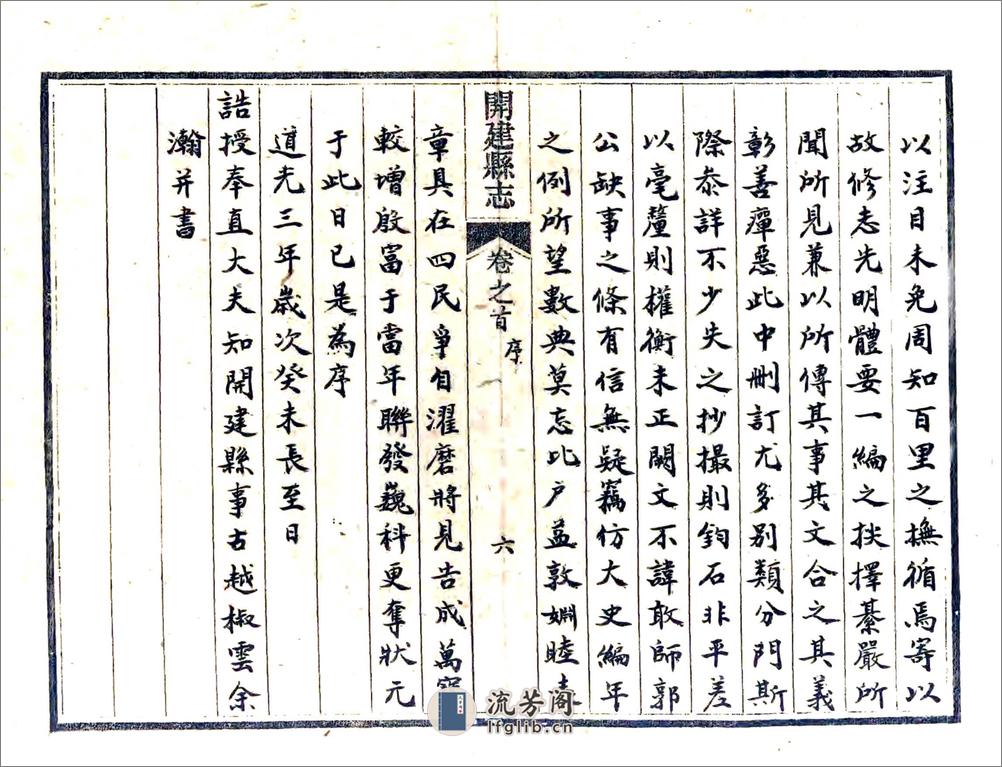 以注目未免周知百里之撫循焉寄以
故修志先明體要一編之抉擇綦嚴所
聞所見兼以所傳其事其文合之其義
彰善癉惡此中刪訂尤多別類分門斯
際叅詳不少失之抄撮則鈞石非平差
以毫釐則權衡未正闕文不諱敢師郭
公缺事之條有信無疑竊仿大史編年
之例所望數典莫忘比户益敦婣睦
開建縣志 卷之首 序 六
章具在四民爭自濯磨將見告成萬
較增殷富于當年聯發巍科更奪狀元
于此日已是為序
道光三年歲次癸未長至日
誥授奉直大夫知開建縣事古越椒雲余
瀚并書
流芳阁
lfglib.cn